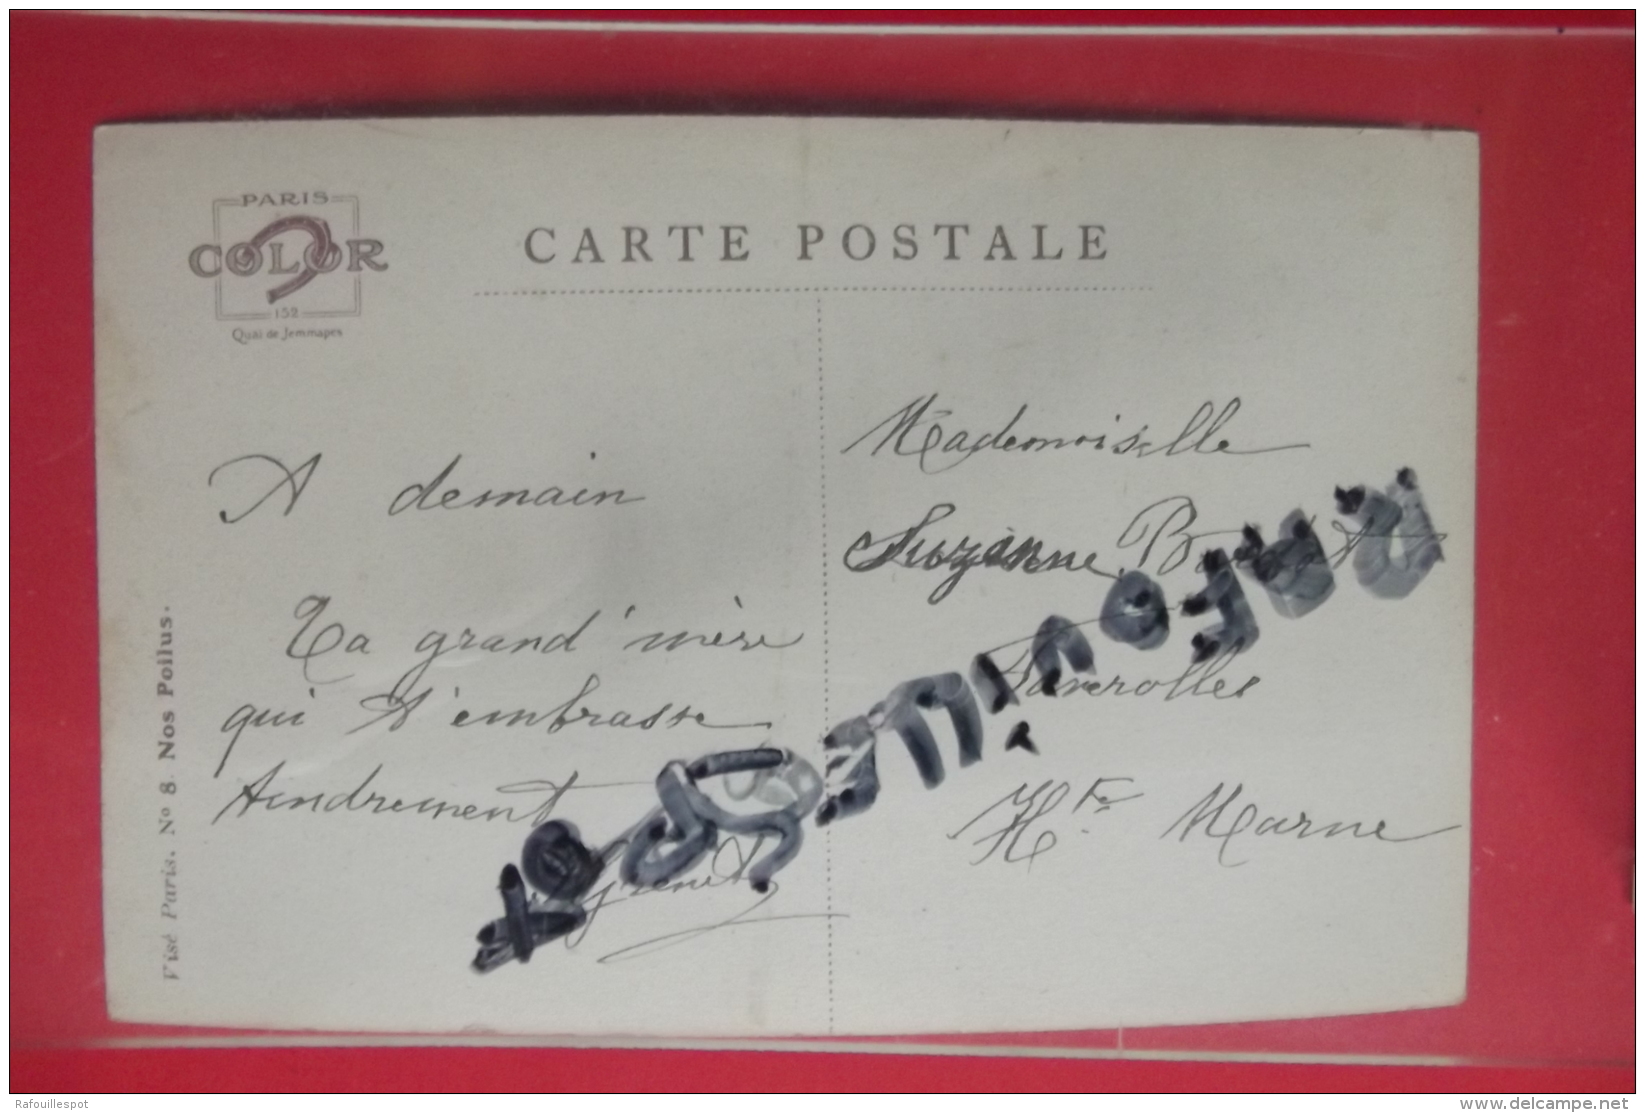 PARIS
COLOR
152
Quai de Jemmapes
CARTE POSTALE
Visé Paris. Nº 8. Nos Poilus.
A demain
Ta grand'mère
qui t'embrasse
tendrement
Mademoiselle
Suzanne
Faverolles
Hte Marne
Rafouillespot
delcampe.net